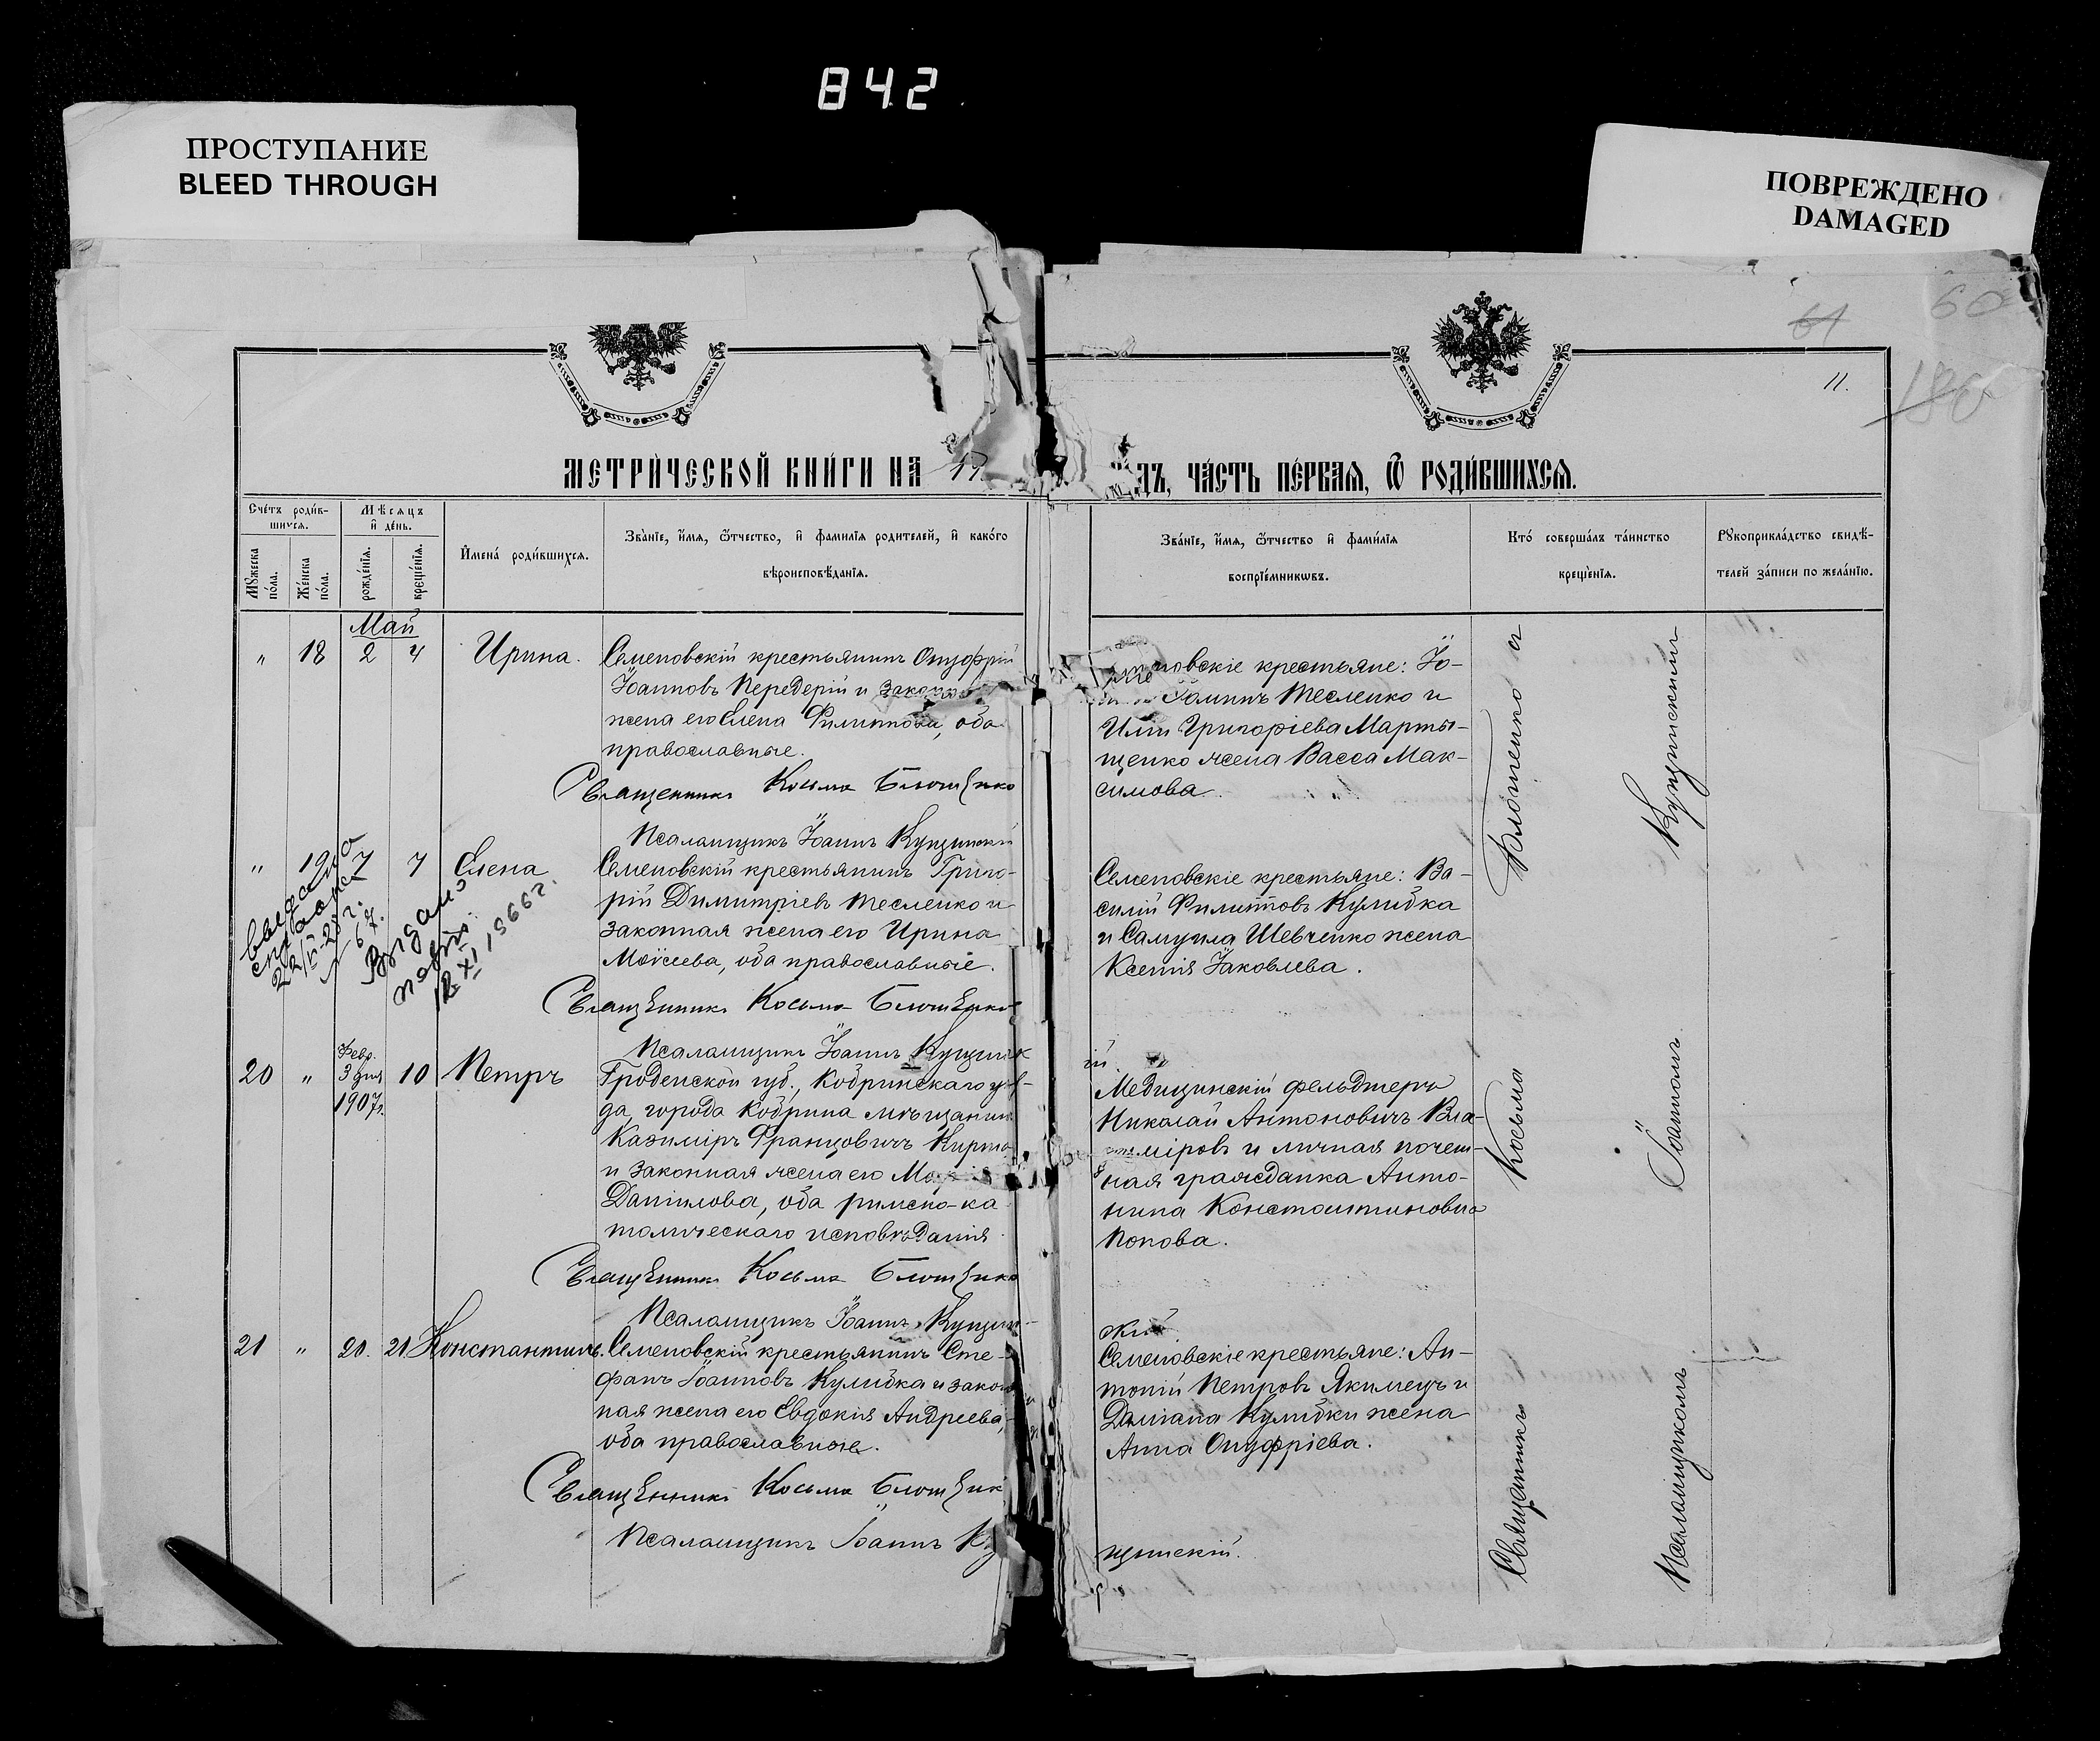 842
ПРОСТУПАНИЕ
BLEED THROUGH
ПОВРЕЖДЕНО
DAMAGED
61
60
11.
МЕТРИ́ЧЕСКОЙ КНИ́ГИ НА 19
ДЪ, ЧА́СТЬ ПЕ́РВАЯ, Ѿ РОДИ́ВШИХСЯ.
Счетъ роди́в-
шихся.
Мѣсяцъ
и де́нь.
Мужеска по́ла.
Же́нска по́ла.
рожде́нія.
креще́нія.
Имена́ роди́вшихся.
Зва́ніе, и́мя, ѻ́тчество, и фамилія родителей, и како́го
вѣроисповѣ́данія.
Зва́ніе, и́мя, ѻ́тчество и фами́лія
воспріе́мниковъ.
Кто́ соверша́лъ та́инство
креще́нія.
Рукоприкла́дство свидѣ́-
телей за́писи по жела́нію.
Май
" 18 2 4 Ирина.
Семеновскій крестьянинъ Онуфрій
Іоанновъ Передерій и
жена его Елена Филиппова, оба
православные.
Священникъ Косьма Блошенко
Псаломщикъ Іоаннъ Кущинскій
новскіе крестьяне: Іо-
Тесленко и
Иліи Григоріева Марты-
щенко жена Васса Мак-
симова.
" 19 7 7 Елена
Семеновскій крестьянинъ Григо-
рій Димитріевъ Тесленко и
законная жена его Ирина
Моѵсеева, оба православные.
Священникъ Косьма Блошенко
Псаломщикъ Іоаннъ Кущинск
ій
Семеновскіе крестьяне: Ва-
силій Филипповъ Кулибка
и Самуила Шевченко жена
Ксенія Іаковлева.
выдано
справка
Выдано
повт.
12 XI 1966 г.
20 " Февр. 3 дня 1907 г. 10 Петръ
Гроденской губ., Кобринскаго уѣ-
да, города Кобрина мѣщанинъ
Казиміръ Францовичъ
и законная жена его
Даніилова, оба римско-ка
толическаго исповѣданія.
Священникъ Косьма Блошенко
Псаломщикъ Іоаннъ Кущин-
скій
Медицинскій фельдшеръ
Николай Антоновичъ Вла-
диміровъ и личная почет-
ная гражданка Анто-
нина Константиновна
Попова.
21 " 20. 21 Константинъ.
Семеновскій крестьянинъ Сте-
фанъ Іоанновъ Кулибка и закон
ная жена его Евдокія Андреева,
оба православные.
Священникъ Косьма Блошенк
Псаломщикъ Іоаннъ Ку
щинскій.
Семеновскіе крестьяне: Ан-
тоній Петровъ Якимецъ и
Даміана Кулибки жена
Анна Онуфріева.
Священникъ Косьма Блошенко и
Псаломщикомъ Іоанномъ Кущинскимъ